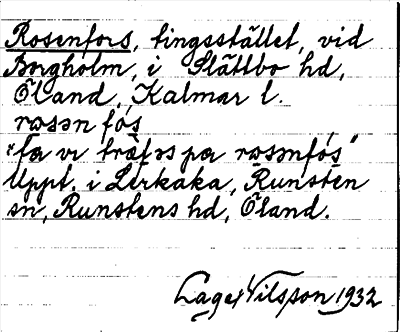 Rosenfors, tingsstället, vid
Borgholm, i Slättbo hd,
Öland, Kalmar l.
rosən fós
"fa vi träfəs pa rosənfós"
Uppt. i Lerkaka, Runsten
sn, Runstens hd, Öland.
Lage Nilsson 1932